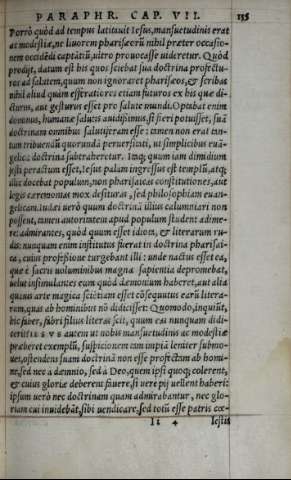 PARAPHR. CAP. VII. 135
Porrò quòd ad tempus latitauit Iesus, mansuetudinis erat
ac modestiæ, ne liuorem pharisæorũ nihil præter occasio-
nem occidẽdi captãtiũ, vltro prouocasse uideretur. Quòd
prodijt, datum est his quos sciebat sua doctrina profectu-
ros ad salutem, quum non ignoraret pharisæos, & scribas
nihil aliud quàm efferatiores etiam futuros ex his quæ di-
cturus, aut gesturus esset pro salute mundi. Optabat enim
dominus, humanæ salutis auidissimus, si fieri potuisset, suã
doctrinam omnibus salutiferam esse: tamen non erat tan-
tum tribuendũ quorundã peruersitati, ut simplicibus euã-
gelica doctrina subtraheretur. Itaq; quum iam dimidium
festi peractum esset, Iesus palam ingressus est templũ, atq;
illic docebat populum, non pharisaicas constitutiones, aut
legis ceremonias mox desituras, sed philosophiam euan-
gelicam. Iudæi uerò quum doctrinã illius calumniari non
possent, tamen autoritatem apud populum student adime-
re: admirantes, quòd quum esset idiota, & literarum ru-
dis: nunquam enim institutus fuerat in doctrina pharisai-
ca, cuius professione turgebant illi: unde nactus esset ea,
quæ è sacris uoluminibus magna sapientia depromebat,
uelut insimulantes eum quòd dæmonium haberet, aut alia
quauis arte magica sciẽtiam esset cõsequutus earũ litera-
rum, quas ab hominibus nõ didicisset: Quomodo, inquiũt,
hic faber, fabri filius literas scit, quum eas nunquam didi-
cerit: IESVS autem ut nobis mansuetudinis ac modestiæ
præberet exemplũ, suspicionem tam impiã leniter submo-
uet, ostendens suam doctrinã non esse profectam ab homi-
ne, sed nec à dæmonio, sed à Deo, quem ipsi quoq; colerent,
& cuius gloriæ deberent fauere, si uere pij uellent haberi:
ipsum uerò nec doctrinam quam admirabantur, nec glo-
riam cui inuidebãt, sibi uendicare, sed totũ esse patris cœ-
Ii 4 lestis